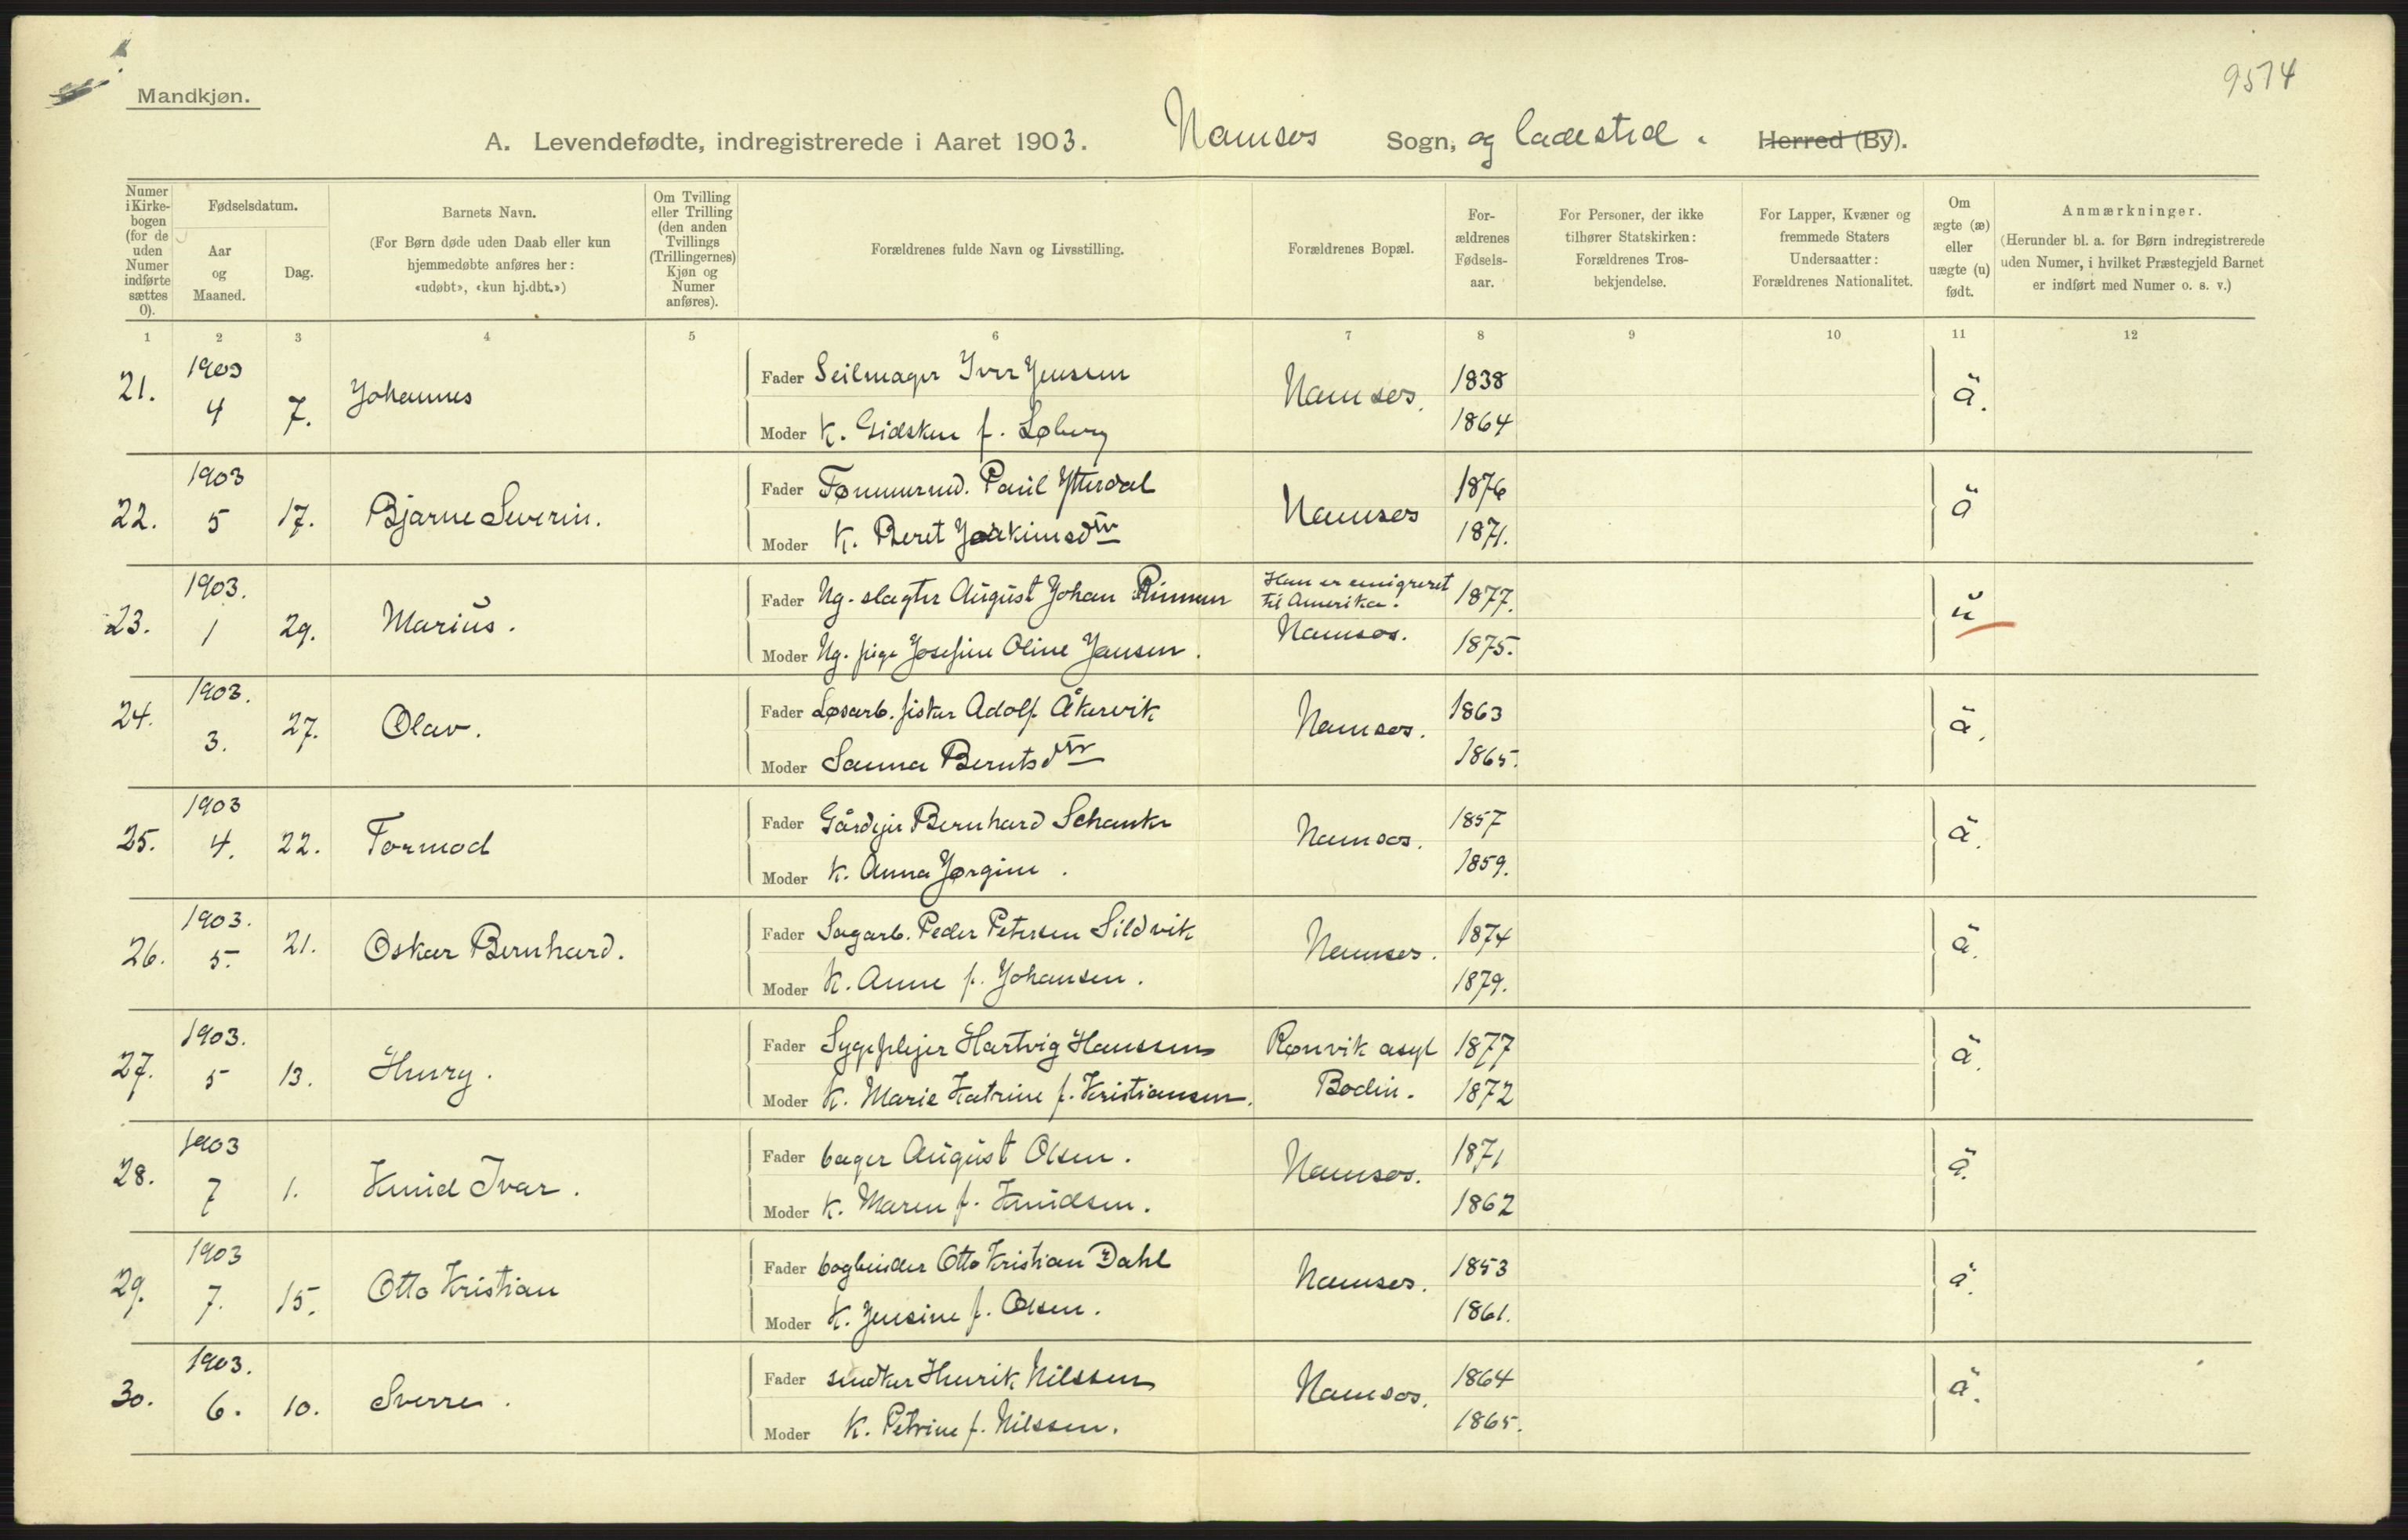 9574
Mandkjøn.
A. Levendefødte, indregistrerede i Aaret 1903. Namsos Sogn, og ladested. Herred (By).
Numer i Kirkebogen (for de uden Numer indførte sættes 0).
Fødselsdatum.
Aar og Maaned.
Dag.
Barnets Navn.
(For Børn døde uden Daab eller kun hjemmedøbte anføres her: «udøbt», «kun hj.dbt.»)
Om Tvilling eller Trilling (den anden Tvillings (Trillingernes) Kjøn og Numer anføres).
Forældrenes fulde Navn og Livsstilling.
Forældrenes Bopæl.
For-ældrenes Fødsels-aar.
For Personer, der ikke tilhører Statskirken: Forældrenes Tros-bekjendelse.
For Lapper, Kvæner og fremmede Staters Undersaatter: Forældrenes Nationalitet.
Om ægte (æ) eller uægte (u) født.
Anmærkninger.
(Herunder bl. a. for Børn indregistrerede uden Numer, i hvilket Præstegjeld Barnet er indført med Numer o. s. v.)
1 2 3 4 5 6 7 8 9 10 11 12
21. 1903 4 7. Johannes
Fader Seilmager Iver Jenssen Namsos. 1838 ä.
Moder K. Gidsken f. Løberg 1864
22. 1903 5 17. Bjarne Severin.
Fader Tømmermd. Paul Ytterdal Namsos 1876 ä
Moder K. Beret Joakimsdtr 1871.
23. 1903. 1 29. Marius.
Fader Ug. slagter August Johan Rimmen Han er emigreret til Amerika. 1877. u
Moder Ug. pige Josefine Oline Jansen. Namsos. 1875.
24. 1903. 3. 27. Olav.
Fader Løsarb. fisker Adolf Åkervik Namsos. 1863 ä.
Moder Sanna Berntsdtr 1865.
25. 1903 4. 22. Tormod
Fader Gårdejer Bernhard Schanke Namsos. 1857 ä.
Moder K. Anna Jørgine. 1859.
26. 1903. 5. 21. Oskar Bernhard.
Fader Sagarb. Peder Petersen Sildvik Namsos. 1874 ä.
Moder K. Anne f. Johansen. 1879.
27. 1903. 5 13. Henry.
Fader Sygeplejer Hartvig Hanssen Rønvik asyl 1877 ä.
Moder K. Marie Katrine f. Kristiansen. Bodin. 1872
28. 1903 7 1. Knud Ivar.
Fader bager August Olsen. Namsos. 1871 ä.
Moder K. Maren f. Knudsen. 1862
29. 1903 7. 15. Otto Kristian
Fader bogbinder Otto Kristian Dahl Namsos. 1853 ä.
Moder K. Jensine f. Olsen. 1861.
30. 1903. 6. 10. Sverre.
Fader snedker Henrik Nilssen Namsos. 1864 ä.
Moder K. Petrine f. Nilssen. 1865.